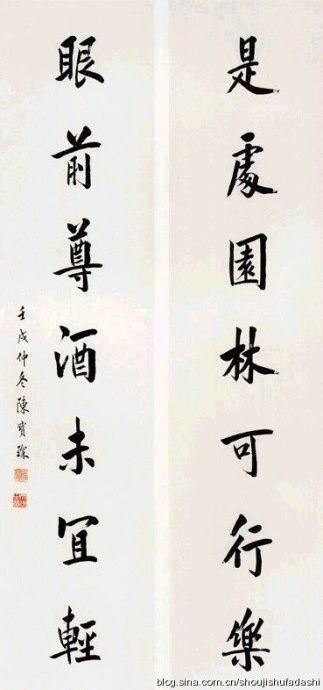 是處園林可行樂
眼前尊酒未宜輕
壬戌仲冬陳寶琛
blog.sina.com.cn/shoujishufadashi